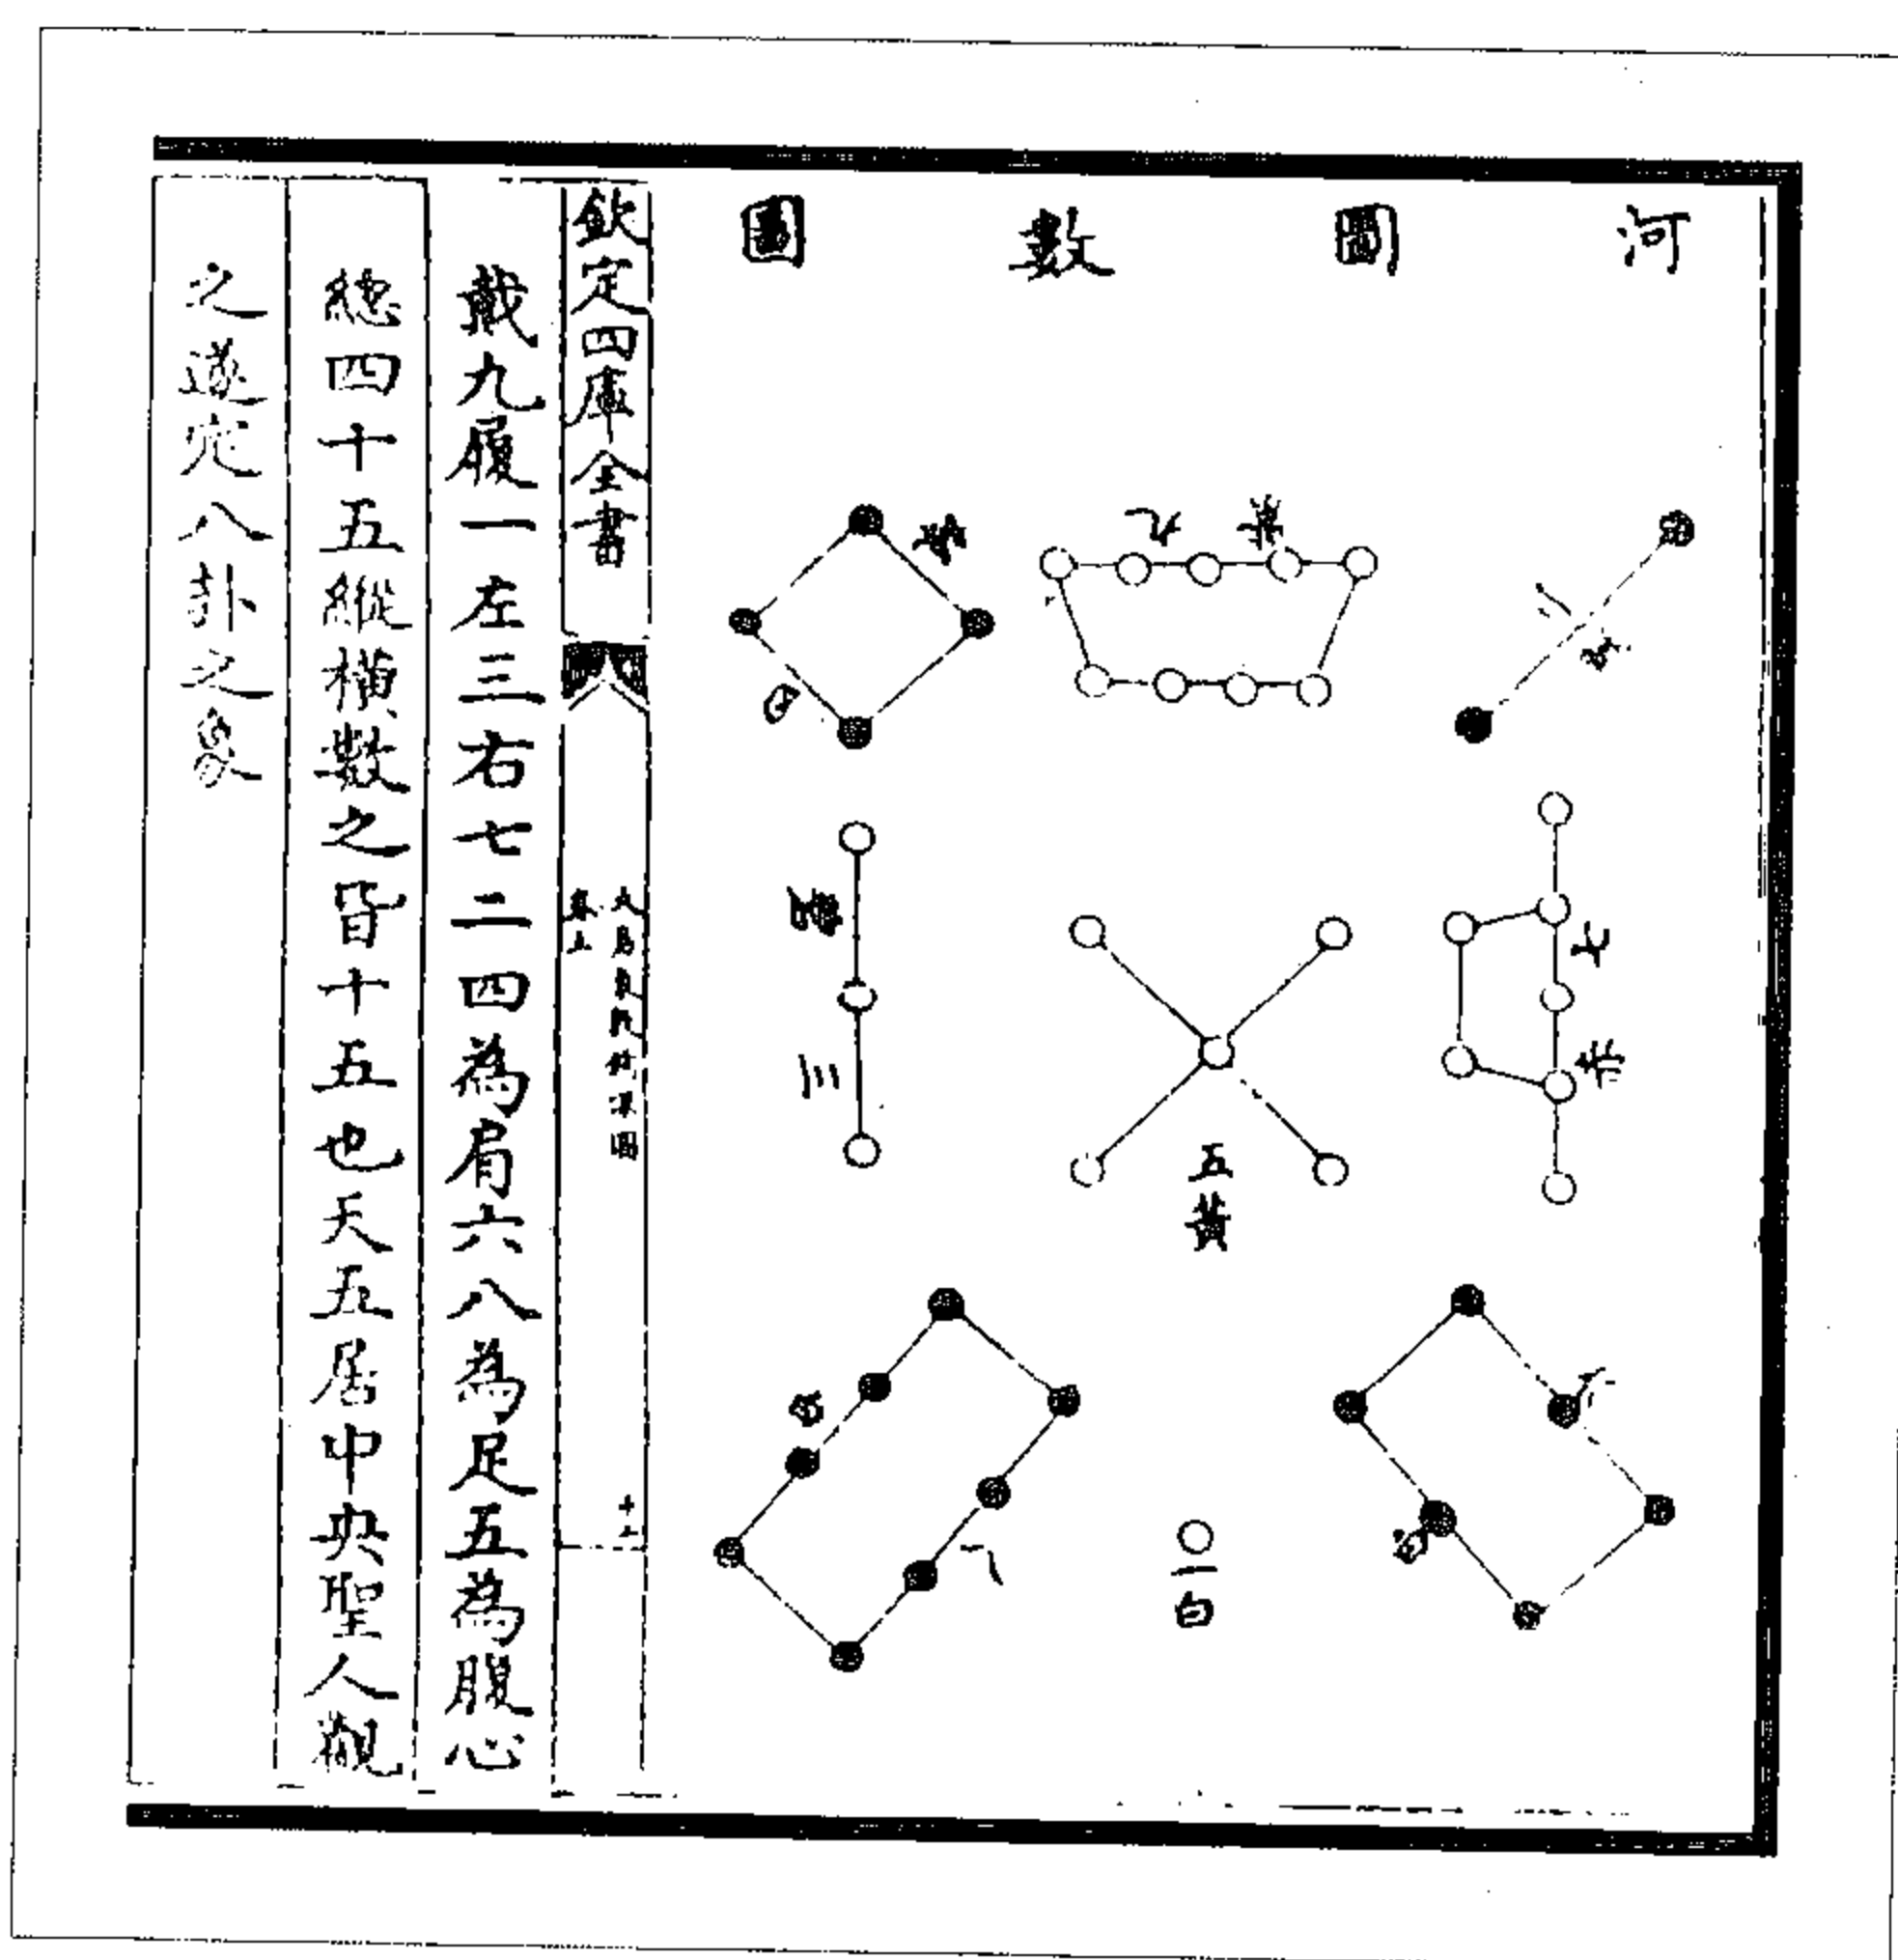 河圖數圖
二黑
九紫
四碧
七赤
五黃
三綠
六白
一白
八白
欽定四庫全書
大易象數鉤深圖
卷上
十二
戴九履一左三右七二四為肩六八為足五為腹心
總四十五縱橫數之皆十五也天五居中央聖人觀
之遂定八卦之象